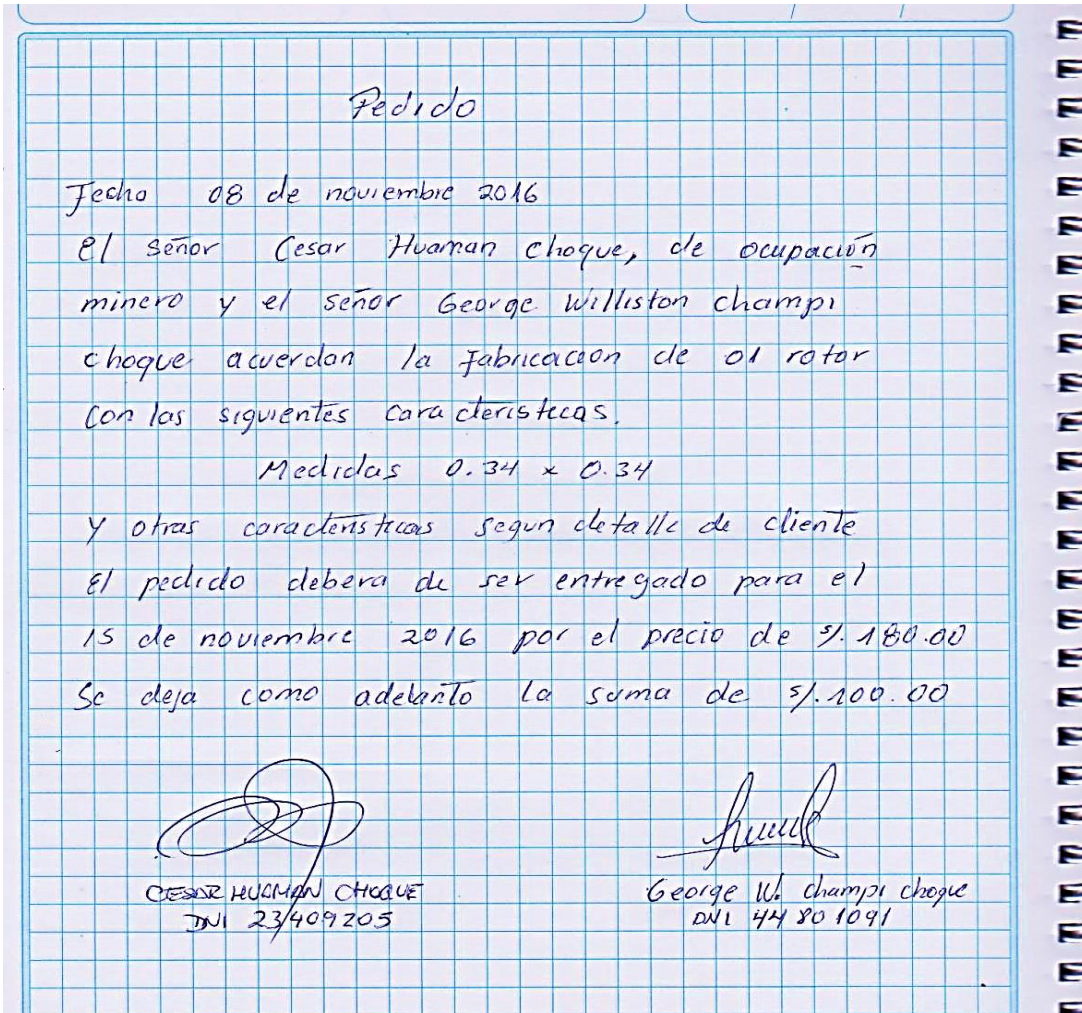 Pedido
Fecha 08 de noviembre 2016
El señor Cesar Huaman choque, de ocupación
minero y el señor George Williston champi
choque acuerdan la fabricacion de 01 rotor
con las siguientes caracteristicas.
Medidas 0.34 x 0.34
y otras caracteristicas segun detalle de cliente
El pedido debera de ser entregado para el
15 de noviembre 2016 por el precio de S/. 180.00
Se deja como adelanto la suma de S/. 100.00
CESAR HUAMAN CHOQUE
George W. champi choque
DNI 23409205
DNI 44801091